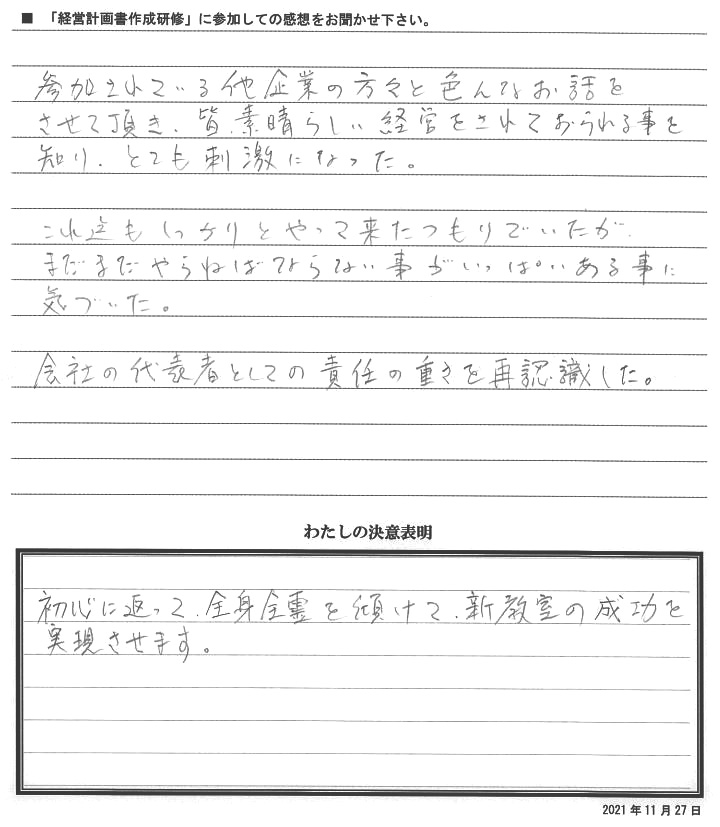 ■ 「経営計画書作成研修」に参加しての感想をお聞かせ下さい。
参加されている他企業の方々と色んなお話を
させて頂き、皆、素晴らしい経営をされておられる事を
知り、とても刺激になった。
これ迄もしっかりとやって来たつもりでいたが、
まだまだやらねばならない事がいっぱいある事に
気づいた。
会社の代表者としての責任の重さを再認識した。
わたしの決意表明
初心に返って、全身全霊を傾けて、新教室の成功を
実現させます。
2021年11月27日